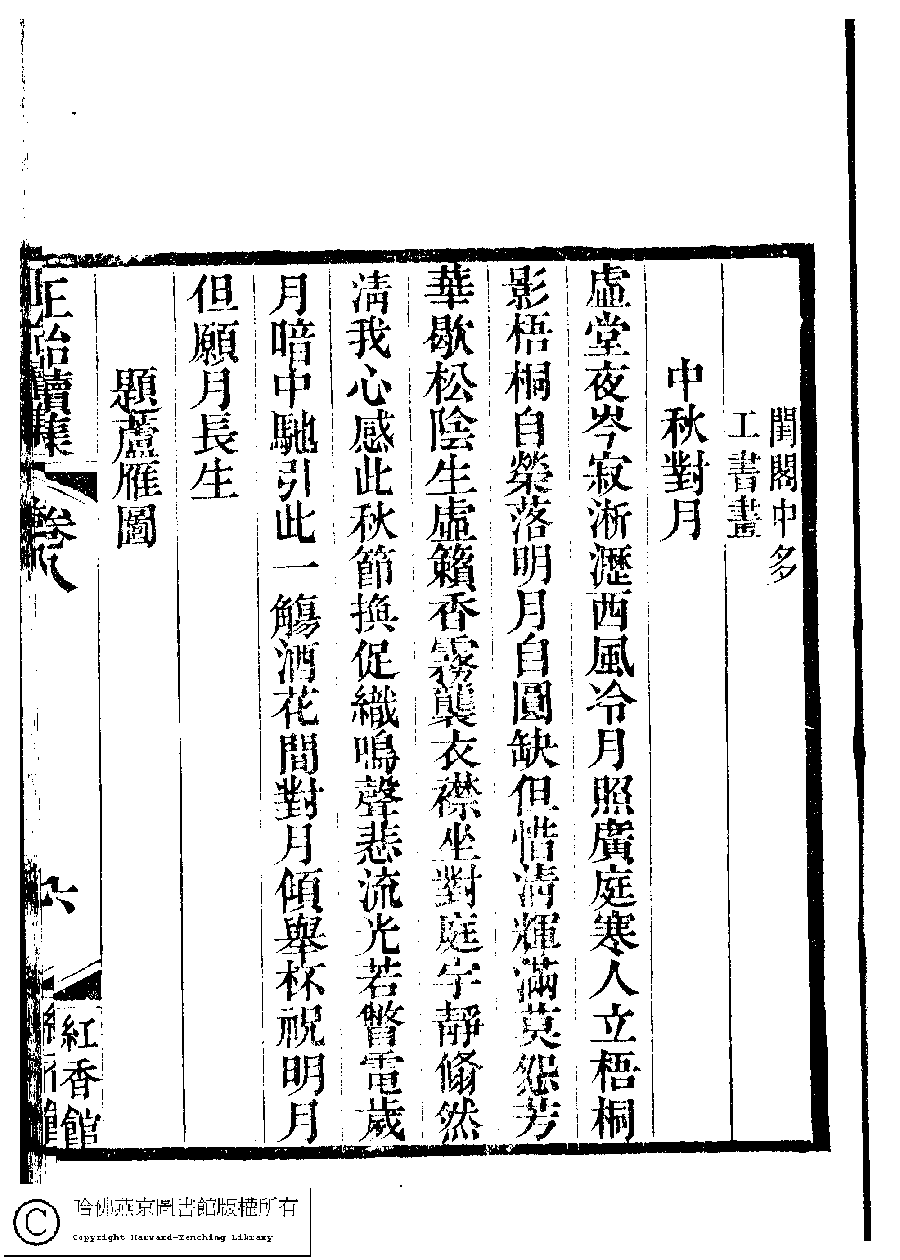 閨閣中多
工書畫
中秋對月
虛堂夜岑寂淅瀝西風冷月照廣庭寒人立梧桐
影梧桐自榮落明月自圓缺但惜清輝滿莫怨芳
華歇松陰生虛籟香霧襲衣襟坐對庭宇靜翛然
清我心感此秋節換促織鳴聲悲流光若瞥電歲
月暗中馳引此一觴酒花間對月傾舉杯祝明月
但願月長生
題蘆雁圖
正始續集
卷八
六
紅香館
哈佛燕京圖書館版權所有
Copyright Harvard-Yenching Library